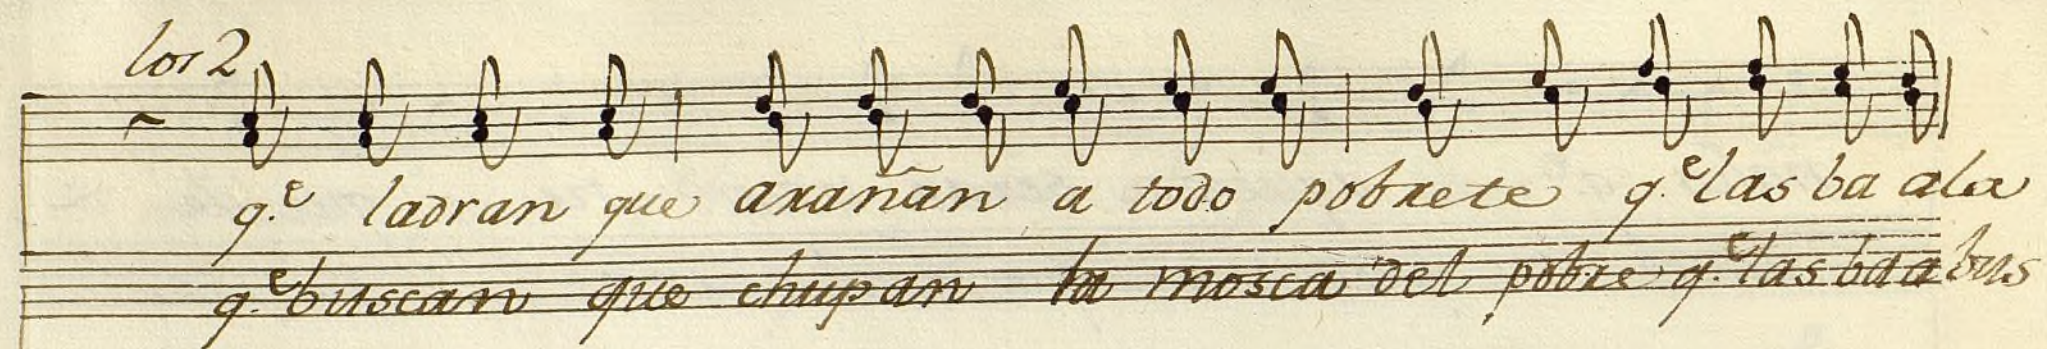 los 2
q.e ladran que arañan a todo pobrete q.e las ba ala
q.e buscan que chupan la mosca del pobre q.e las ba a bus